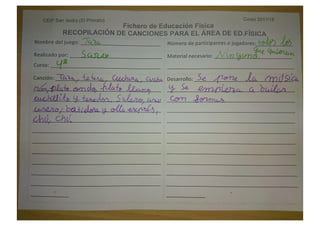 CEIP San Isidro (El Priorato) Curso 2017/18
Fichero de Educación Física
RECOPILACIÓN DE CANCIONES PARA EL ÁREA DE ED.FÍSICA
Nombre del juego: Taza Número de participantes o jugadores: todos los
que quieran
Realizado por: Material necesario: Ninguno
Curso: 4º
Canción: Taza, tetera, cuchara, cucha
rón, plato ondo, plato llano,
cuchillito y tenedor. Salero,
batidora y olla exprés,
chú, chú.
Desarrollo: Se pone la música
y se empieza a bailar
con